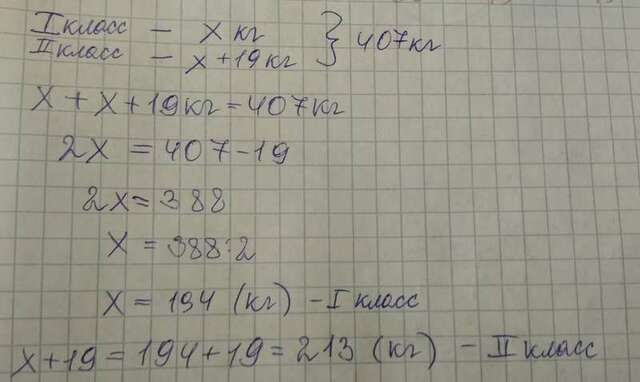 I класс – x кг } 407кг
II класс – x+19кг
x + x + 19кг = 407кг
2x = 407-19
2x = 388
x = 388:2
x = 194 (кг) – I класс
x+19 = 194+19 = 213 (кг) – II класс